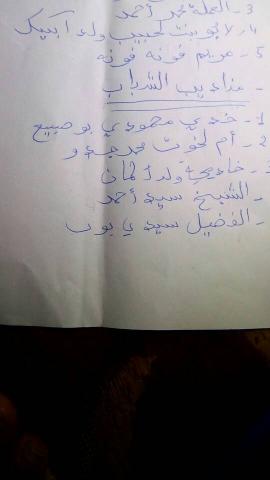 3 - العملة محمد أحمد
4 - لالة بنت لحبيب ولد أبيبك
5 - مريم فونه فونه
- مناديب الشباب
1 - خدي محمودي بوصبيع
2 - أم لخوت محمد
3 - خاديجة ولد
- الشيخ سيد أحمد
- الفضيل سيدي بوب